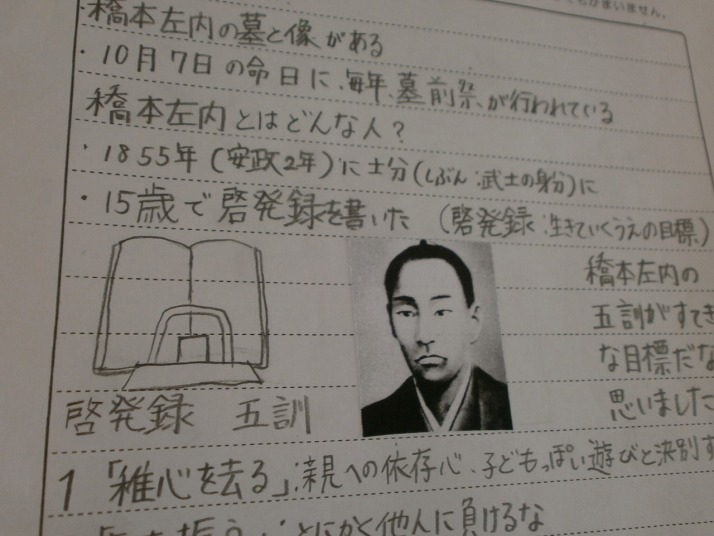 てもかまいません。
橋本左内の墓と像がある
・10月7日の命日に、毎年、墓前祭、が行われている
橋本左内とはどんな人？
・1855年(安政2年)に士分(しぶん:武士の身分)に
・15歳で啓発録を書いた (啓発録:生きていくうえの目標)
橋本左内の
五訓がすてき
な目標だな
思いました
啓発録 五訓
1 「稚心を去る」:親への依存心、子どもっぽい遊びと決別す
とにかく他人に負けるな